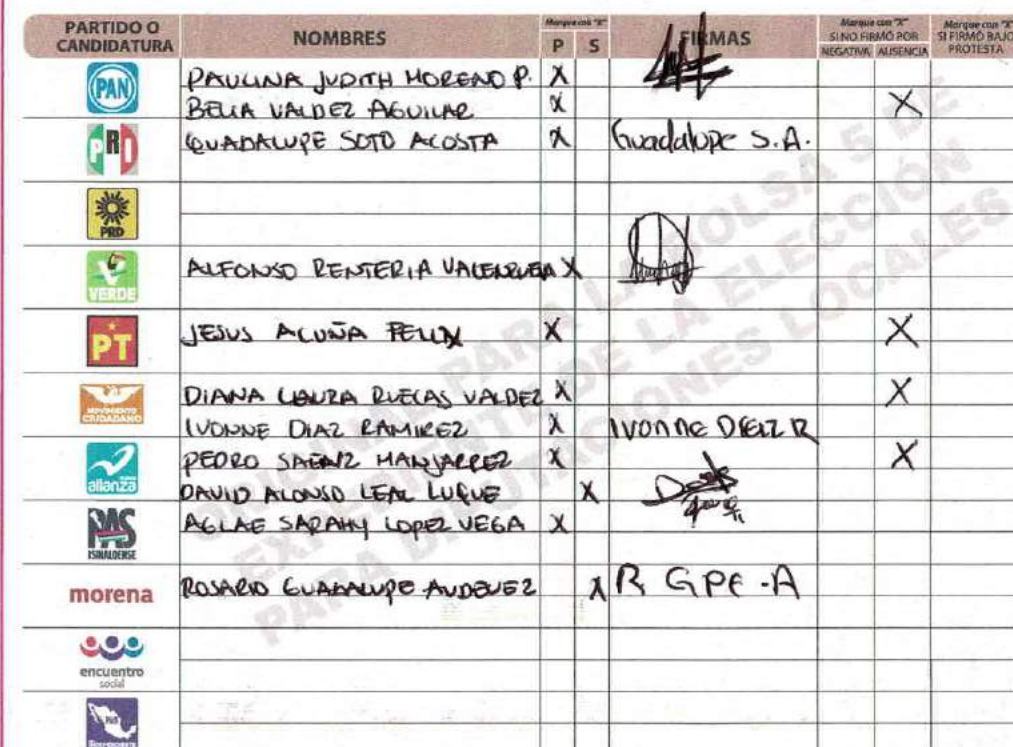 PARTIDO O CANDIDATURA NOMBRES Marque con "X" P S FIRMAS Marque con "X" SI NO FIRMÓ POR NEGATIVA AUSENCIA Marque con "X" SI FIRMÓ BAJO PROTESTA
PAN PAULINA JUDITH MORENO P. X
BELIA VALDEZ AGUILAR X X
PRI GUADALUPE SOTO ACOSTA X Guadalupe S.A.
PRD
VERDE ALFONSO RENTERIA VALENZUELA X
PT JESUS ACUÑA FELIX X X
MOVIMIENTO CIUDADANO DIANA LAURA RUELAS VALDEZ X X
IVONNE DIAZ RAMIREZ X IVONNE DIAZ R
alianza PEDRO SAENZ MANJARREZ X X
DAVID ALONSO LEAL LUQUE X
PAS SINALOENSE AGLAE SARAHY LOPEZ VEGA X
morena ROSARIO GUADALUPE AUDEVEZ X R GPE-A
encuentro social
ORIGINAL PARA LA BOLSA 5 DE
EXPEDIENTE DE LA ELECCIÓN
PARA DIPUTACIONES LOCALES